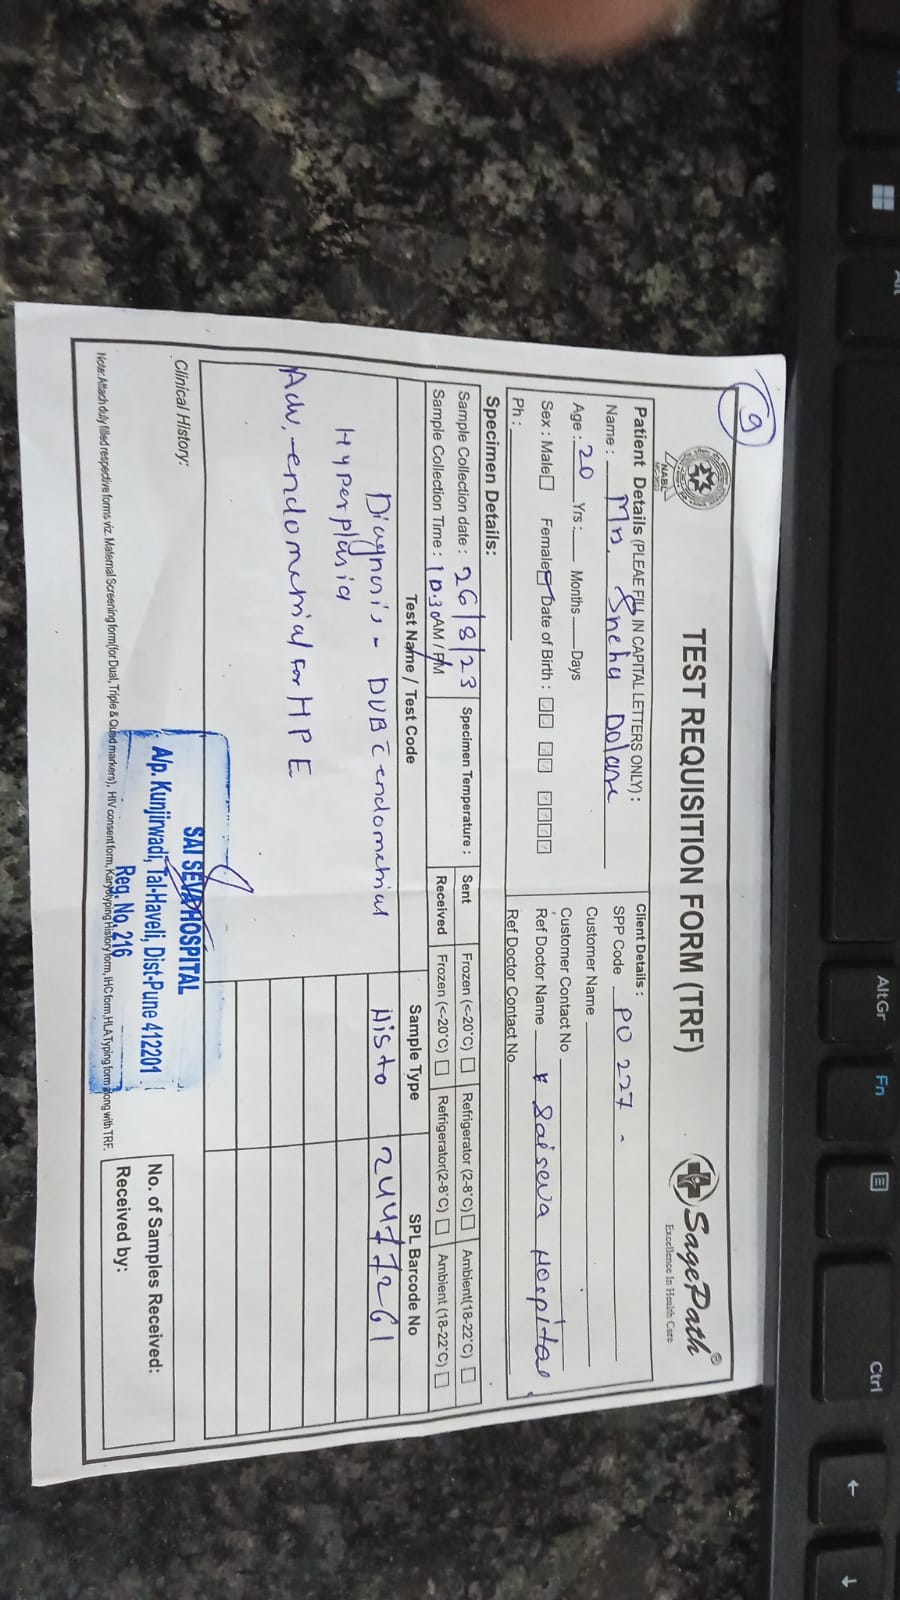 9
TEST REQUISITION FORM (TRF)
NABL
SagePath®
Excellence In Health Care
Patient Details (PLEAE FILL IN CAPITAL LETTERS ONLY) :
Name : Mn. Sneha Dolare
Age : 20 Yrs : Months Days
Sex : Male Female Date of Birth :
Ph :
Client Details :
SPP Code PO 227 -
Customer Name
Customer Contact No
Ref Doctor Name Saiseva Hospital
Ref Doctor Contact No
Specimen Details:
Sample Collection date : 26/8/23 Specimen Temperature : Sent Frozen (<-20°C) Refrigerator (2-8°C) Ambient(18-22°C)
Sample Collection Time : 10.30 AM / PM Received Frozen (<-20°C) Refrigerator(2-8°C) Ambient (18-22°C)
Test Name / Test Code Sample Type SPL Barcode No
Diagnosis - DUB c̄ endometrial Histo 24477261
Hyperplasia
Adv, -endometrial For HPE
Clinical History:
SAI SEVA HOSPITAL
A/p. Kunjirwadi, Tal-Haveli, Dist-Pune 412201
Reg. No. 216
No. of Samples Received:
Received by:
Note: Attach duly filled respective forms viz. Maternal Screening form(for Dual, Triple & Quad markers), HIV consent form, Karyotyping History form, IHC form, HLA Typing form along with TRF.
AltGr
Fn
Ctrl